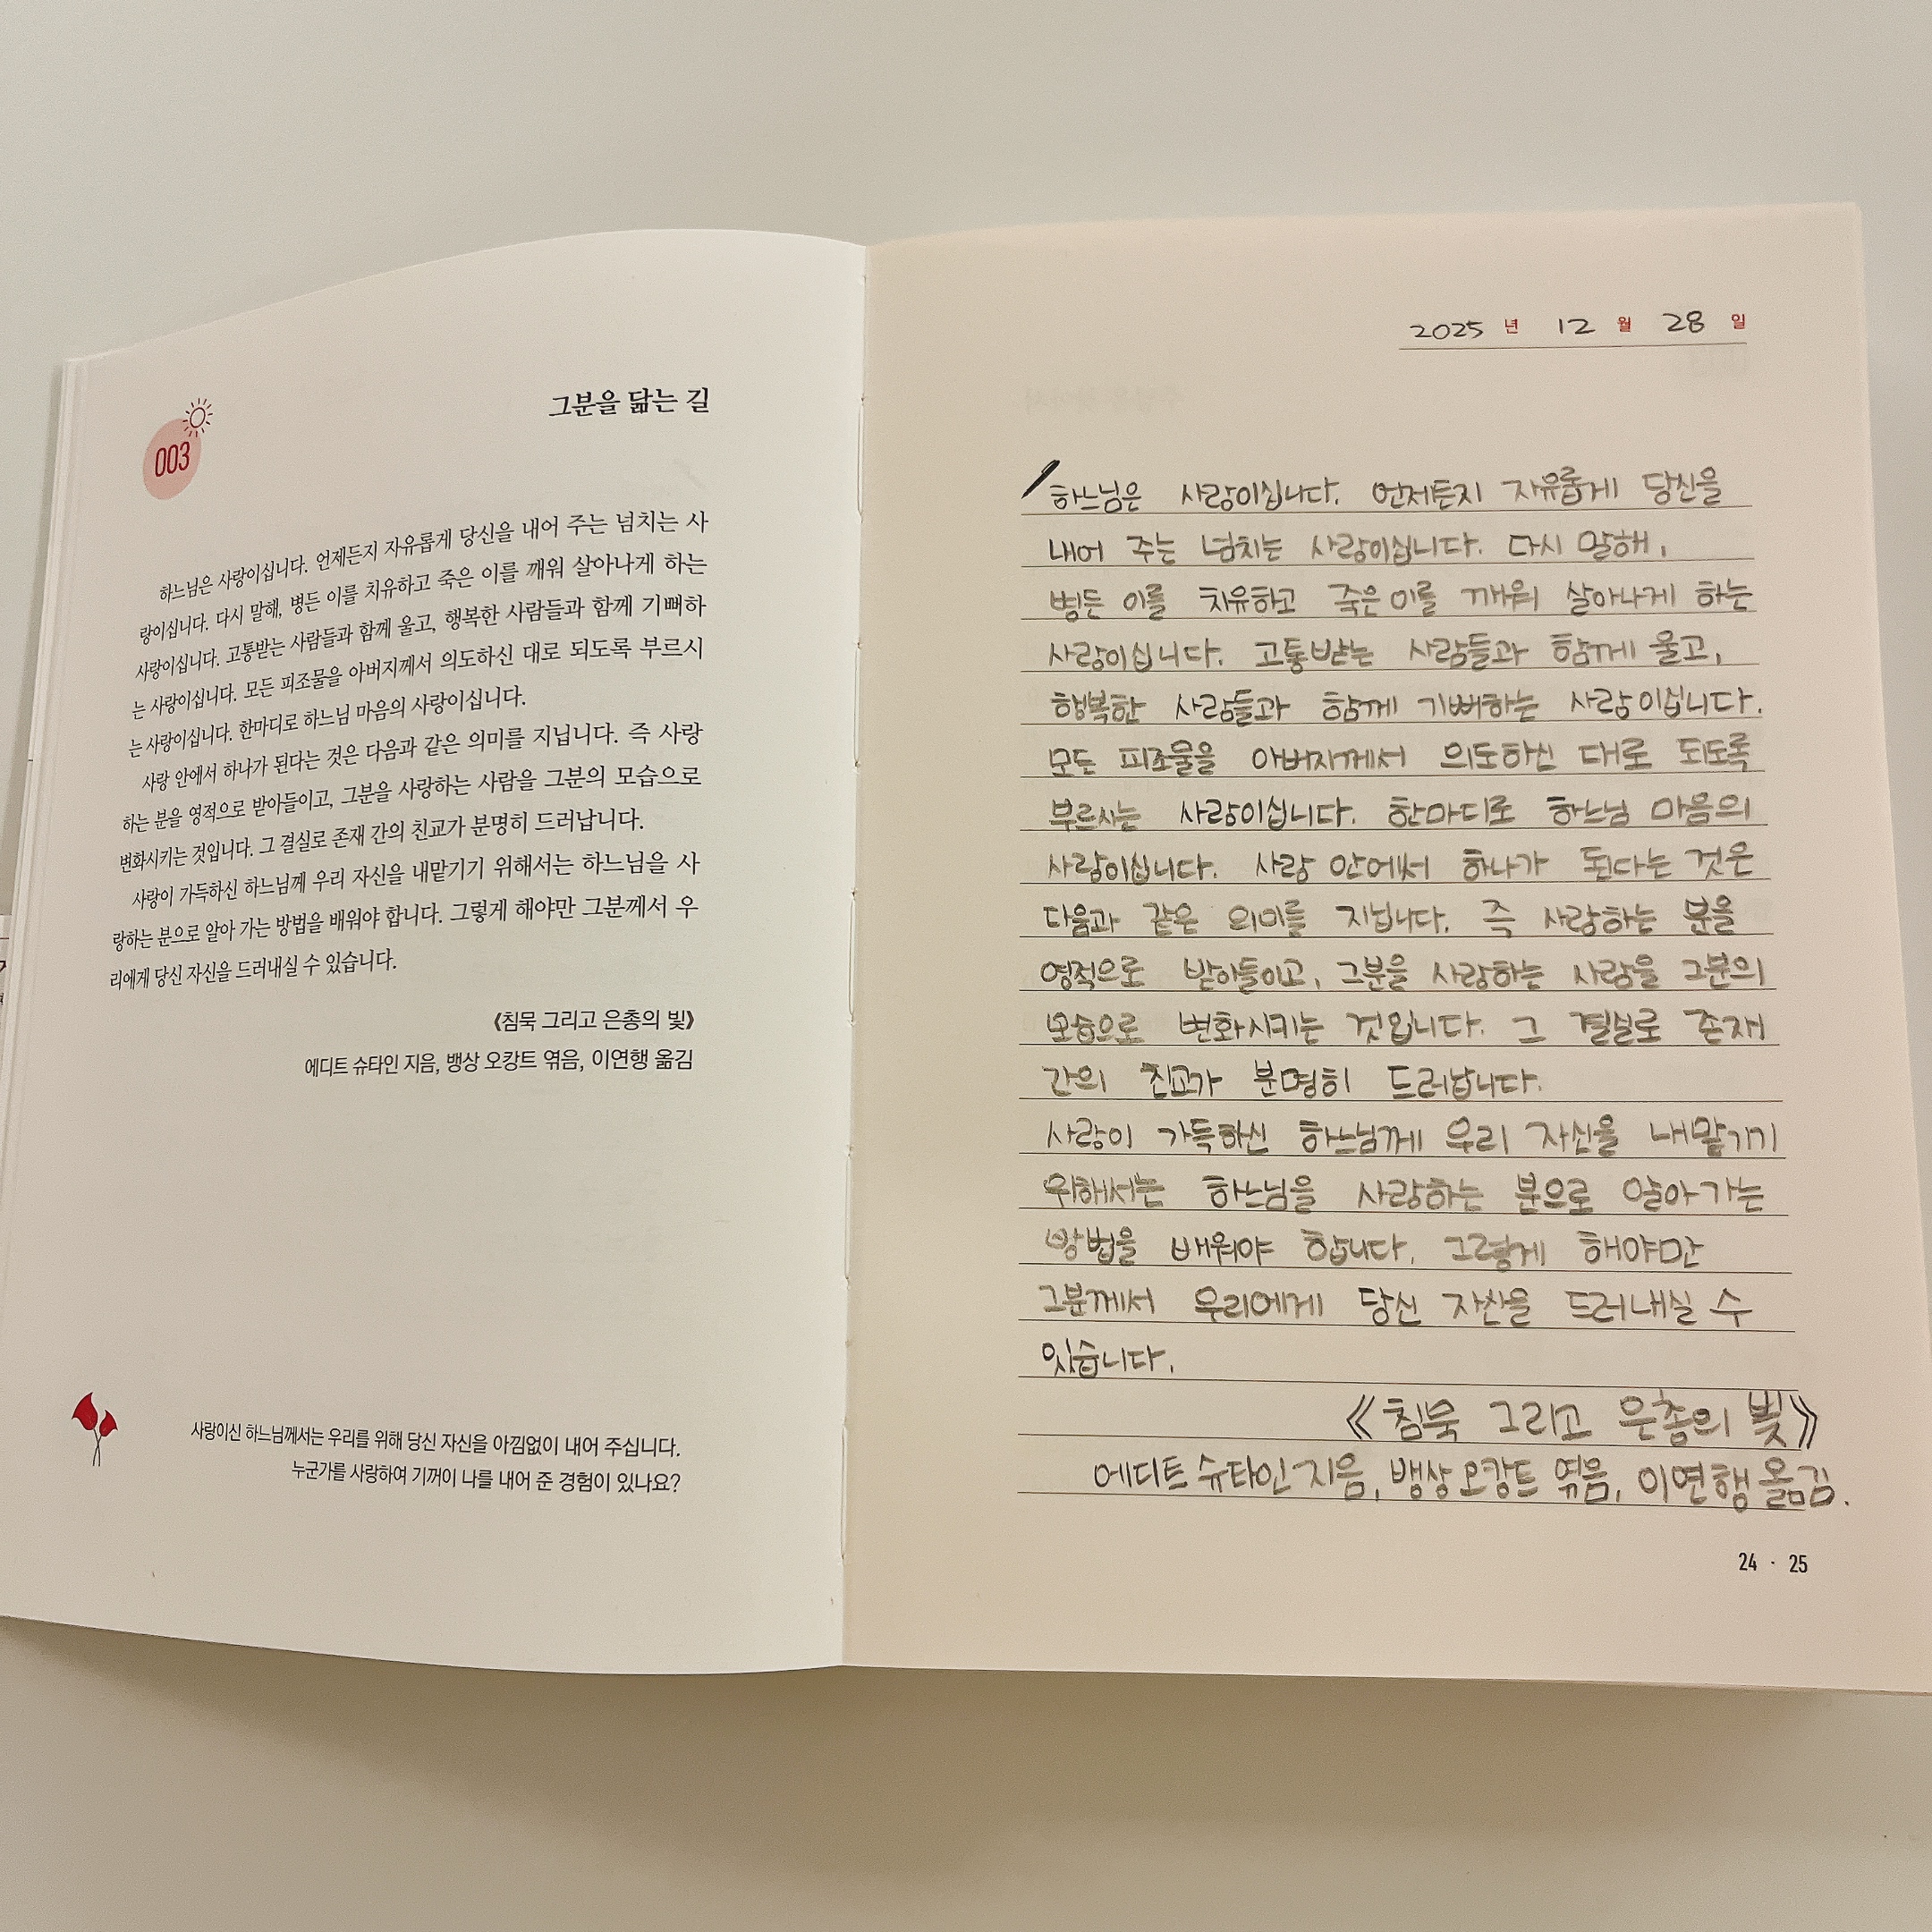 003
그분을 닮는 길
하느님은 사랑이십니다. 언제든지 자유롭게 당신을 내어 주는 넘치는 사
랑이십니다. 다시 말해, 병든 이를 치유하고 죽은 이를 깨워 살아나게 하는
사랑이십니다. 고통받는 사람들과 함께 울고, 행복한 사람들과 함께 기뻐하
는 사랑이십니다. 모든 피조물을 아버지께서 의도하신 대로 되도록 부르시
는 사랑이십니다. 한마디로 하느님 마음의 사랑이십니다.
사랑 안에서 하나가 된다는 것은 다음과 같은 의미를 지닙니다. 즉 사랑
하는 분을 영적으로 받아들이고, 그분을 사랑하는 사람을 그분의 모습으로
변화시키는 것입니다. 그 결실로 존재 간의 친교가 분명히 드러납니다.
사랑이 가득하신 하느님께 우리 자신을 내맡기기 위해서는 하느님을 사
랑하는 분으로 알아 가는 방법을 배워야 합니다. 그렇게 해야만 그분께서 우
리에게 당신 자신을 드러내실 수 있습니다.
《침묵 그리고 은총의 빛》
에디트 슈타인 지음, 뱅상 오캉트 엮음, 이연행 옮김
사랑이신 하느님께서는 우리를 위해 당신 자신을 아낌없이 내어 주십니다.
누군가를 사랑하여 기꺼이 나를 내어 준 경험이 있나요?
2025 년 12 월 28 일
하느님은 사랑이십니다. 언제든지 자유롭게 당신을
내어 주는 넘치는 사랑이십니다. 다시 말해,
병든 이를 치유하고 죽은 이를 깨워 살아나게 하는
사랑이십니다. 고통받는 사람들과 함께 울고,
행복한 사람들과 함께 기뻐하는 사랑이십니다.
모든 피조물을 아버지께서 의도하신 대로 되도록
부르시는 사랑이십니다. 한마디로 하느님 마음의
사랑이십니다. 사랑 안에서 하나가 된다는 것은
다음과 같은 의미를 지닙니다. 즉 사랑하는 분을
영적으로 받아들이고, 그분을 사랑하는 사람을 그분의
모습으로 변화시키는 것입니다. 그 결실로 존재
간의 친교가 분명히 드러납니다.
사랑이 가득하신 하느님께 우리 자신을 내맡기기
위해서는 하느님을 사랑하는 분으로 알아 가는
방법을 배워야 합니다. 그렇게 해야만
그분께서 우리에게 당신 자신을 드러내실 수
있습니다.
《침묵 그리고 은총의 빛》
에디트 슈타인 지음, 뱅상 오캉트 엮음, 이연행 옮김.
24 · 25